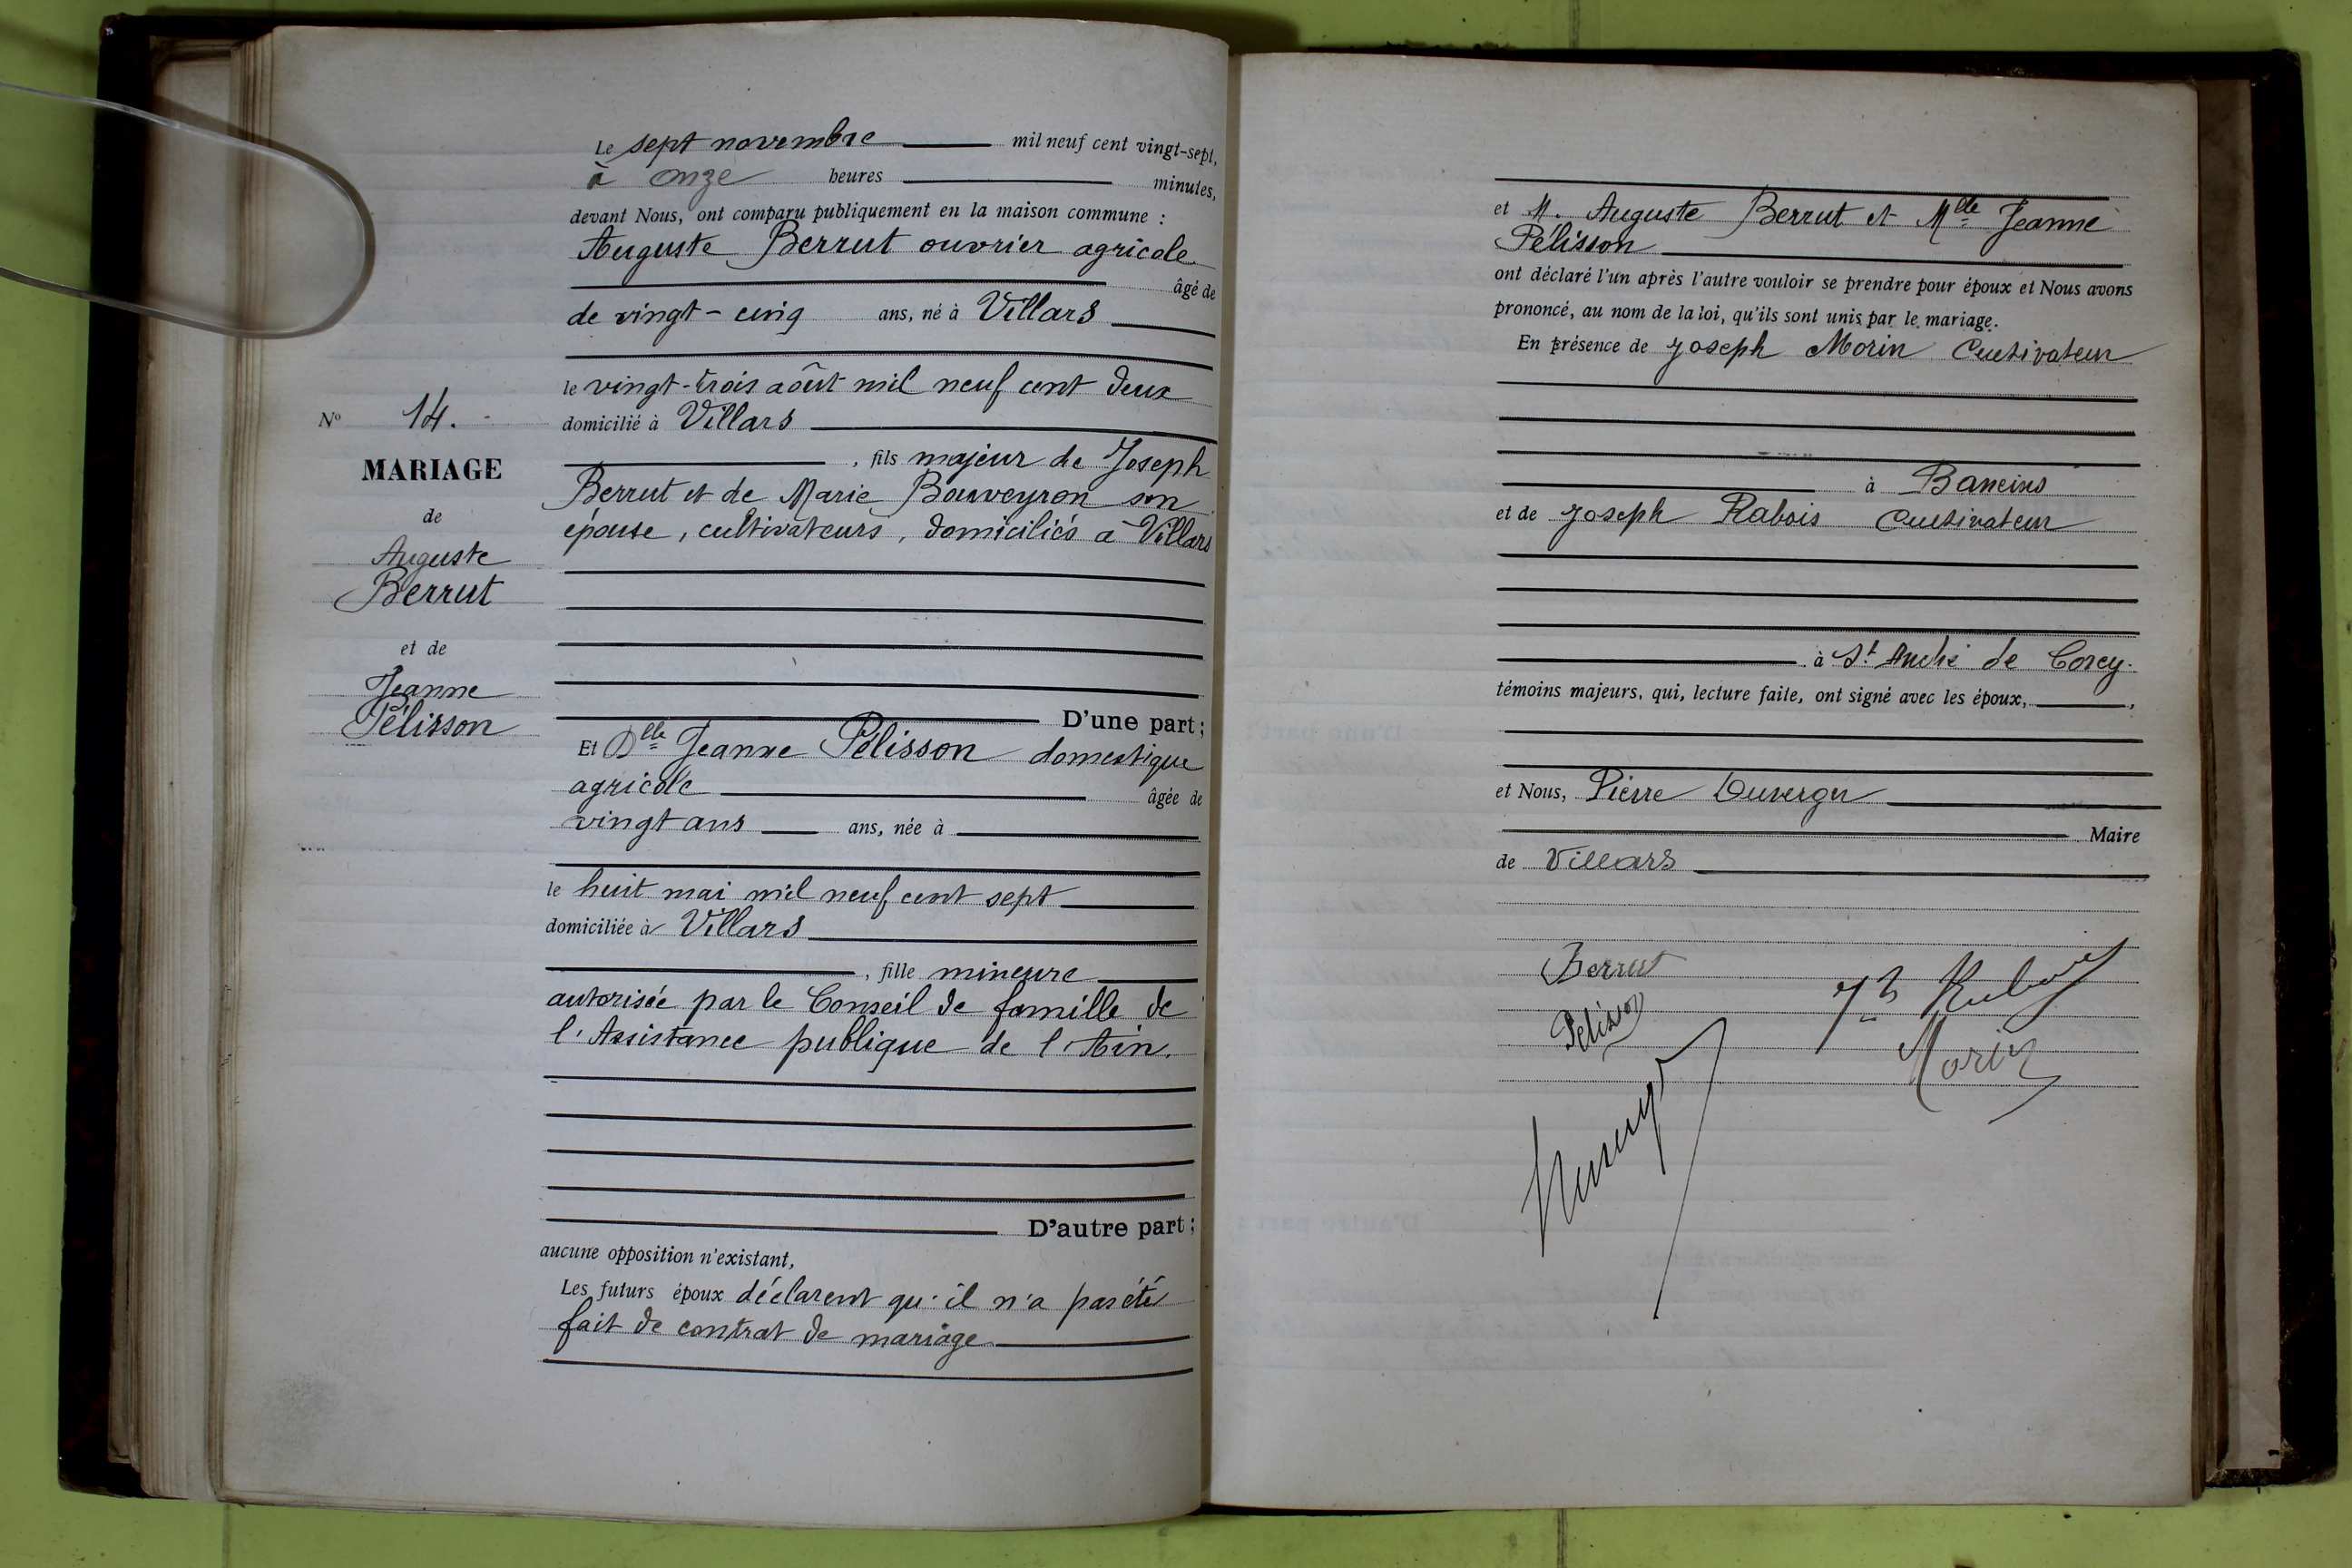 Le sept novembre mil neuf cent vingt-sept,
à onze heures minutes,
devant Nous, ont comparu publiquement en la maison commune :
Auguste Berrut ouvrier agricole
âgé de
de vingt-cinq ans, né à Villars
le vingt-trois août mil neuf cent deux
domicilié à Villars
, fils majeur de Joseph
Berrut et de Marie Bouveyron son
épouse, cultivateurs, domiciliés à Villars
D'une part ;
Et Dlle Jeanne Pélisson domestique
agricole âgée de
vingt ans ans, née à
le huit mai mil neuf cent sept
domiciliée à Villars
, fille mineure
autorisée par le Conseil de famille de
l'Assistance publique de l'Ain.
D'autre part ;
aucune opposition n'existant,
Les futurs époux déclarent qu'il n'a pas été
fait de contrat de mariage
No 14.
MARIAGE
de
Auguste
Berrut
et de
Jeanne
Pélisson
et M. Auguste Berrut et Mlle Jeanne
Pélisson
ont déclaré l'un après l'autre vouloir se prendre pour époux et Nous avons
prononcé, au nom de la loi, qu'ils sont unis par le mariage.
En présence de Joseph Morin Cultivateur
à Baneins
et de Joseph Rabois Cultivateur
à St André de Corcy.
témoins majeurs, qui, lecture faite, ont signé avec les époux, ,
et Nous, Pierre Duverger
Maire
de Villars
Berrut
Pélisson
Morin